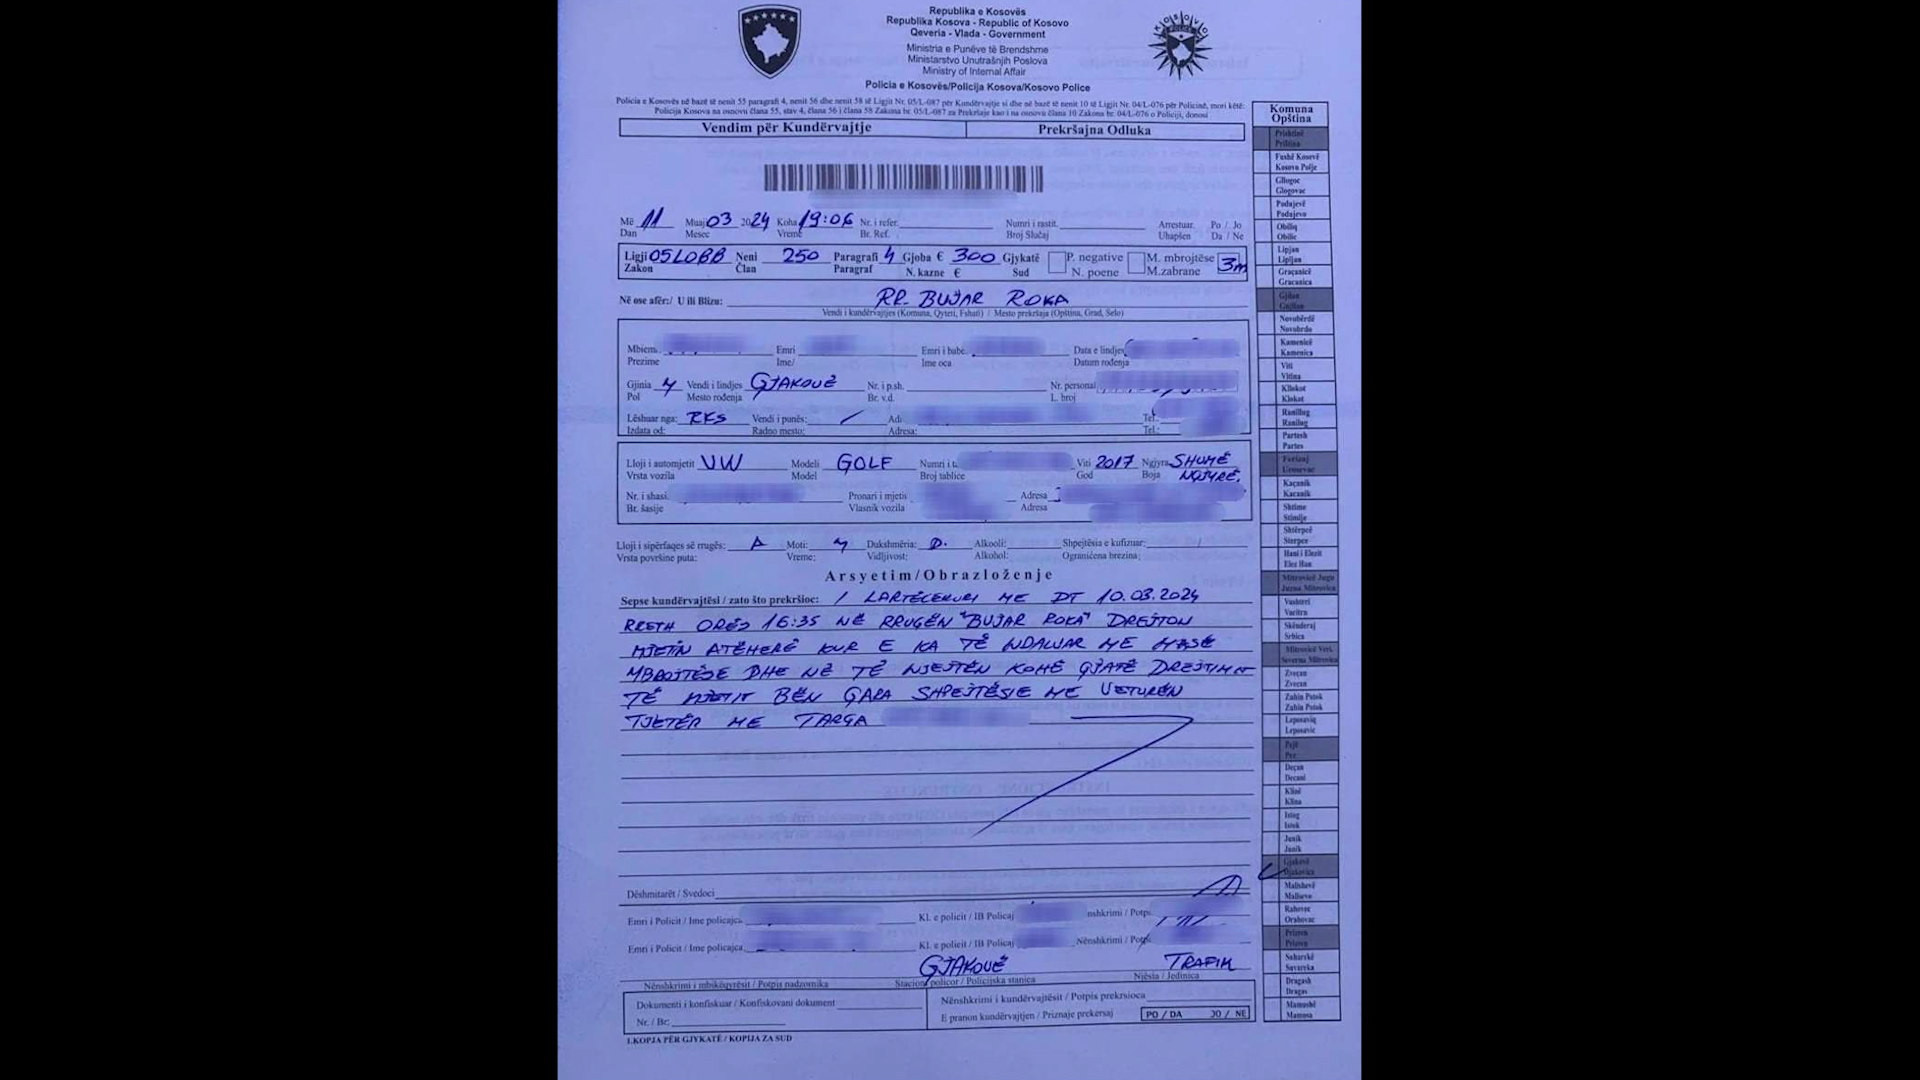 Republika e Kosovës
Republika Kosova - Republic of Kosovo
Qeveria - Vlada - Government
Ministria e Punëve të Brendshme
Ministarstvo Unutrašnjih Poslova
Ministry of Internal Affair
Policia e Kosovës/Policija Kosova/Kosovo Police
Policia e Kosovës në bazë të nenit 55 paragrafi 4, nenit 56 dhe nenit 58 të Ligjit Nr. 05/L-087 për Kundërvajtje si dhe në bazë të nenit 10 të Ligjit Nr. 04/L-076 për Policinë, mori këtë:
Policija Kosova na osnovu člana 55, stav 4, člana 56 i člana 58 Zakona br. 05/L-087 za Prekršaje kao i na osnovu člana 10 Zakona br. 04/L-076 o Policiji, donosi
Vendim për Kundërvajtje Prekršajna Odluka
Më 11 Muaj 03 2024 Koha 19:06 Nr. i refer. Numri i rastit. Arrestuar. Po / Jo
Dan Mesec Vreme Br. Ref. Broj Slučaj Uhapšen Da / Ne
Ligji 05L088 Neni 250 Paragrafi 4 Gjoba € 300 Gjykatë P. negative M. mbrojtëse 3m
Zakon Član Paragraf N. kazne € Sud N. poene M.zabrane
Në ose afër:/ U ili Blizu: RR. BUJAR ROKA
Vendi i kundërvajtjes (Komuna, Qyteti, Fshati) / Mesto prekršaja (Opština, Grad, Selo)
Mbiem. Emri Emri i babe. Data e lindjes
Prezime Ime/ Ime oca Datum rođenja
Gjinia M Vendi i lindjes GJAKOVË Nr. i p.sh. Nr. personal
Pol Mesto rođenja Br. v.d. L. broj
Lëshuar nga: RKS Vendi i punës: / Adr Tel.
Izdata od: Radno mesto: Adresa: Tel.:
Lloji i automjetit VW Modeli GOLF Numri i t. Viti 2017 Ngjyra SHUMË
Vrsta vozila Model Broj tablice God Boja NGJYRË.
Nr. i shasi. Pronari i mjetit Adresa
Br. šasije Vlasnik vozila Adresa
Lloji i sipërfaqes së rrugës: A Moti: M Dukshmëria: D. Alkooli: Shpejtësia e kufizuar:
Vrsta površine puta: Vreme: Vidljivost: Alkohol: Ograničena brezina:
Arsyetim/Obrazloženje
Sepse kundërvajtësi / zato što prekršioc: I LARTËCEKURI ME DT 10.03.2024
RRETH ORËS 16:35 NË RRUGËN "BUJAR ROKA" DREJTON
MJETIN ATËHERË KUR E KA TË NDALUAR ME MASË
MBROJTËSE DHE NË TË NJEJTËN KOHË GJATË DREJTIMIT
TË MJETIT BËN GARA SHPEJTËSIE ME VETURËN
TJETËR ME TARGA
Dëshmitarët / Svedoci
Emri i Policit / Ime policajca Kl. e policit / IB Policaj Nënshkrimi / Potpis
Emri i Policit / Ime policajca Kl. e policit / IB Policaj Nënshkrimi / Potpis
GJAKOVË TRAFIK
Nënshkrimi i mbikëqyrësit / Potpis nadzornika Stacioni policor / Policijska stanica Njësia / Jedinica
Dokumenti i konfiskuar / Konfiskovani dokument Nënshkrimi i kundërvajtësit / Potpis prekrsioca
Nr. / Br. E pranon kundërvajtjen / Priznaje prekersaj PO / DA JO / NE
1.KOPJA PËR GJYKATË / KOPIJA ZA SUD
Komuna
Opština
Prishtinë
Priština
Fushë Kosovë
Kosovo Polje
Gllogoc
Glogovac
Podujevë
Podujevo
Obiliq
Obilic
Lipjan
Lipljan
Graçanicë
Gracanica
Gjilan
Gnjilane
Novobërdë
Novobrdo
Kamenicë
Kamenica
Viti
Vitina
Kllokot
Klokot
Ranillug
Ranilug
Partesh
Partes
Ferizaj
Urosevac
Kaçanik
Kacanik
Shtime
Stimlje
Shtërpcë
Sterpce
Hani i Elezit
Elez Han
Mitrovicë Jugu
Juzna Mitrovica
Vushtrri
Vucitrn
Skënderaj
Srbica
Mitrovicë Veri.
Severna Mitrovica
Zveçan
Zvecan
Zubin Potok
Zubin Potok
Leposaviq
Leposavic
Pejë
Pec
Deçan
Decani
Klinë
Klina
Istog
Istok
Junik
Junik
Gjakovë
Djakovica
Malishevë
Malisevo
Rahovec
Orahovac
Prizren
Prizren
Suharekë
Suvareka
Dragash
Dragas
Mamushë
Mamusa